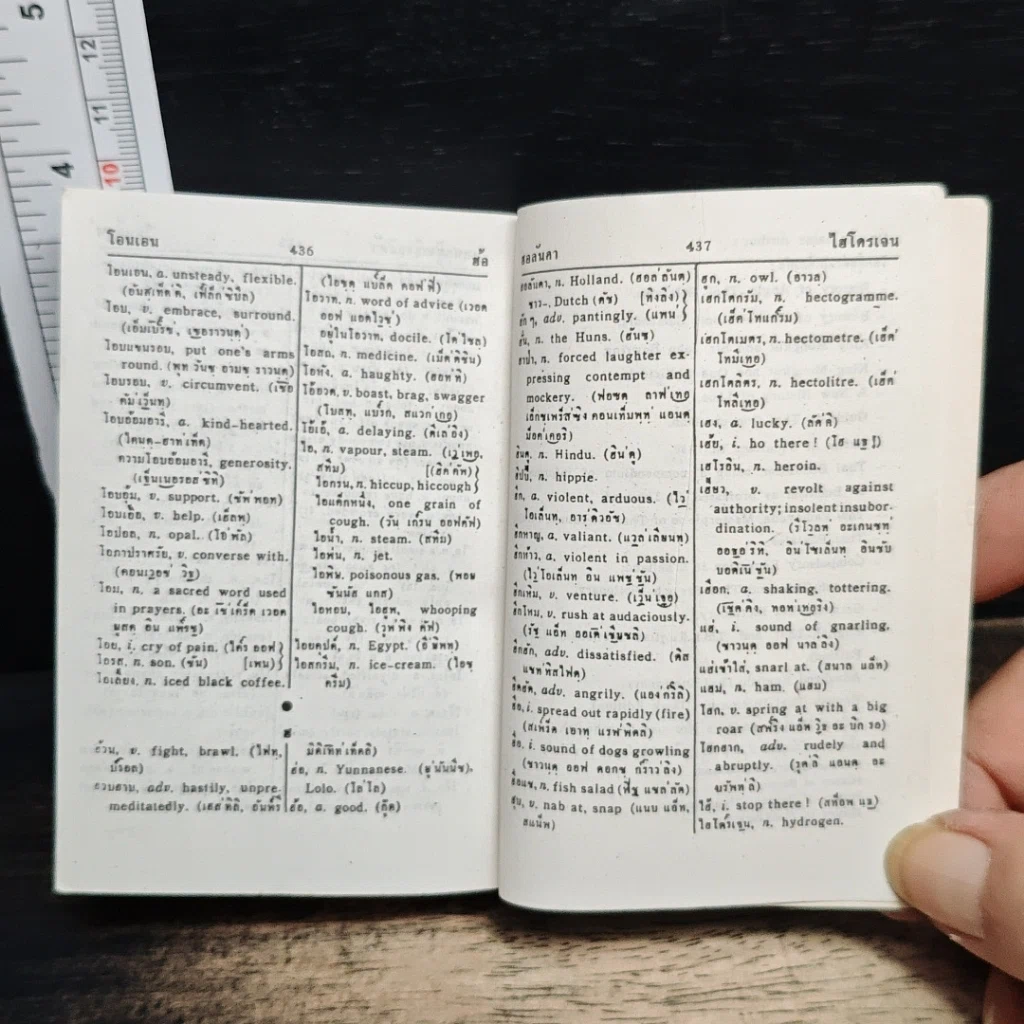 5
12
11
4
10
โอนเอน
436
ฮ้อ
โอนเอน, a. unsteady, flexible.
(อันสเท็ค์ดิ, เฟ็ล็กซิบึล)
โอบ, v. embrace, surround.
(เอ็มเบร๊ซ์, เซอราวนด์)
โอบแขนรอบ, put one's arms
round. (พุท วันซ อามซ ราวนด)
โอบรอบ, v. circumvent.
โอบอ้อมอารี, a. kind-hearted.
(ไคนด-ฮาทเท็ด)
ความโอบอ้อมอารี, generosity.
โอบอุ้ม, v. support. (ซัพพอท)
โอบเอื้อ, v. help. (เฮ็ลพ)
โอปอล, n. opal. (โอ๋พัล)
โอภาปราศรัย, v. converse with.
(คอนเวอซ วิธ)
โอม, n. a sacred word used
in prayers.
โอย, i. cry of pain. (ไคร๋ ออฟ}
โอรส, n. son. (ซัน) [เพน)}
โอเลี้ยง, n. iced black coffee.
(ไอซด แบล๊ค คอฟฟี่)
โอวาท, n. word of advice (เวอด
ออฟ แอดไวซ)
อยู่ในโอวาท, docile. (โด๋ไซล)
โอสถ, n. medicine. (เม็ดดิซิน)
โอหัง, a. haughty. (ฮอททิ)
โอ้อวด, v. boast, brag, swagger
(โบสท, แบร๊ก, สแวกเกอ)
โอ้เอ้, a. delaying. (ดิเลอิง)
ไอ, n. vapour, steam. (เวเพอ,
สทีม) [(ฮิคคัพ)}
ไอกรน, n. hiccup, hiccough}
ไอแค็กหนึ่ง, one grain of
cough. (วัน เกร๊น ออฟคัฟ)
ไอน้ำ, n. steam. (สทีม)
ไอพ่น, n. jet.
ไอพิษ, poisonous gas. (พอย
ซันนัส แกส)
ไอหอบ, ไอฮุพ, whooping
cough. (วุพพิง คัฟ)
ไอยคุปต์, n. Egypt. (อี๋ยิพท)
ไอสกรีม, n. ice-cream. (ไอซ
ครีม)
ฮ
ฮ้วน, v. fight, brawl. (ไฟท,
บร๊อล)
ฮวบฮาบ, adv. hastily, unpre-
meditatedly.
ฮ่อ, n. Yunnanese.
Lolo. (โอโอ)
ฮ้อ, a. good. (กู๊ด)
ฮอลันดา
437
ไฮโดรเจน
ฮอลันดา, n. Holland. (ฮอลลันด)
ชาว-, Dutch (ดัช) [ทิงลิง)}
ฮัก ๆ, adv. pantingly. (แพน}
ฮั่น, n. the Huns. (ฮันซ)
ฮาป่า, n. forced laughter ex-
pressing contempt and
mockery. (ฟอซด ลาฟเทอ
เอ็กซเพร๊สซิง คอนเท็มพท แอนด
ม๊อคเคอริ)
ฮินดู, n. Hindu. (ฮินดู)
ฮิปปี้, n. hippie.
ฮึก, a. violent, arduous. (ไว
โอเล็นท, อาร์ดิวอัซ)
ฮึกหาญ, a. valiant. (แวลเลียนท)
ฮึกห้าว, a. violent in passion.
(ไวโอเล็นท อิน แพชชัน)
ฮึกเหิม, v. venture. (เว็นเชอ)
ฮึกโหม, v. rush at audaciously.
(รัช แอ็ท ออเดิเชิ่มซลิ)
ฮึกฮัก, adv. dissatisfied. (ดิส
แซททิสไฟด)
ฮึดฮัด, adv. angrily. (แองกริลิ)
ฮือ, i. spread out rapidly (fire)
(สเพร็ด เอาท แรพพิดลิ)
ฮื่อ, i. sound of dogs growling
(ซาวนด ออฟ ดอกซ กร๊าวลิง)
ฮื่อแซ, n. fish salad (ฟิช แซลลัด)
ฮุบ, v. nab at, snap (แนบ แอ็ท,
สแน็พ)
ฮูก, n. owl. (อาวล)
เฮกโตกรัม, n. hectogramme.
(เฮ็คโทแกร๊ม)
เฮกโตเมตร, n. hectometre. (เฮ็ค
โทมีเทอ)
เฮกโตลิตร, n. hectolitre. (เฮ็ค
โทลีเทอ)
เฮง, a. lucky. (ลัคคิ)
เฮ้ย, i. ho there! (โฮ แธ)
เฮโรอิน, n. heroin.
เฮี้ยว, v. revolt against
authority; insolent insubor-
dination. (รีโวลท อะเกนซท
ออธอริที, อินโซเล็นท อินซับ
บอดิเนชัน)
เฮือก, a. shaking, tottering.
(เช็คคิง, ทอทเทอริง)
แฮ่, i. sound of gnarling.
(ซาวนด ออฟ นาลลิง)
แฮ่เข้าใส่, snarl at. (สนาล แอ็ท)
แฮม, n. ham. (แฮม)
โฮก, v. spring at with a big
roar (สพริง แอ็ท วิธ อะ บิก รอ)
โฮกฮาก, adv. rudely and
abruptly. (รูดลิ แอนด อะ
บรัพทลิ)
ไฮ้, i. stop there! (สท็อพ แธ)
ไฮโดรเจน, n. hydrogen.